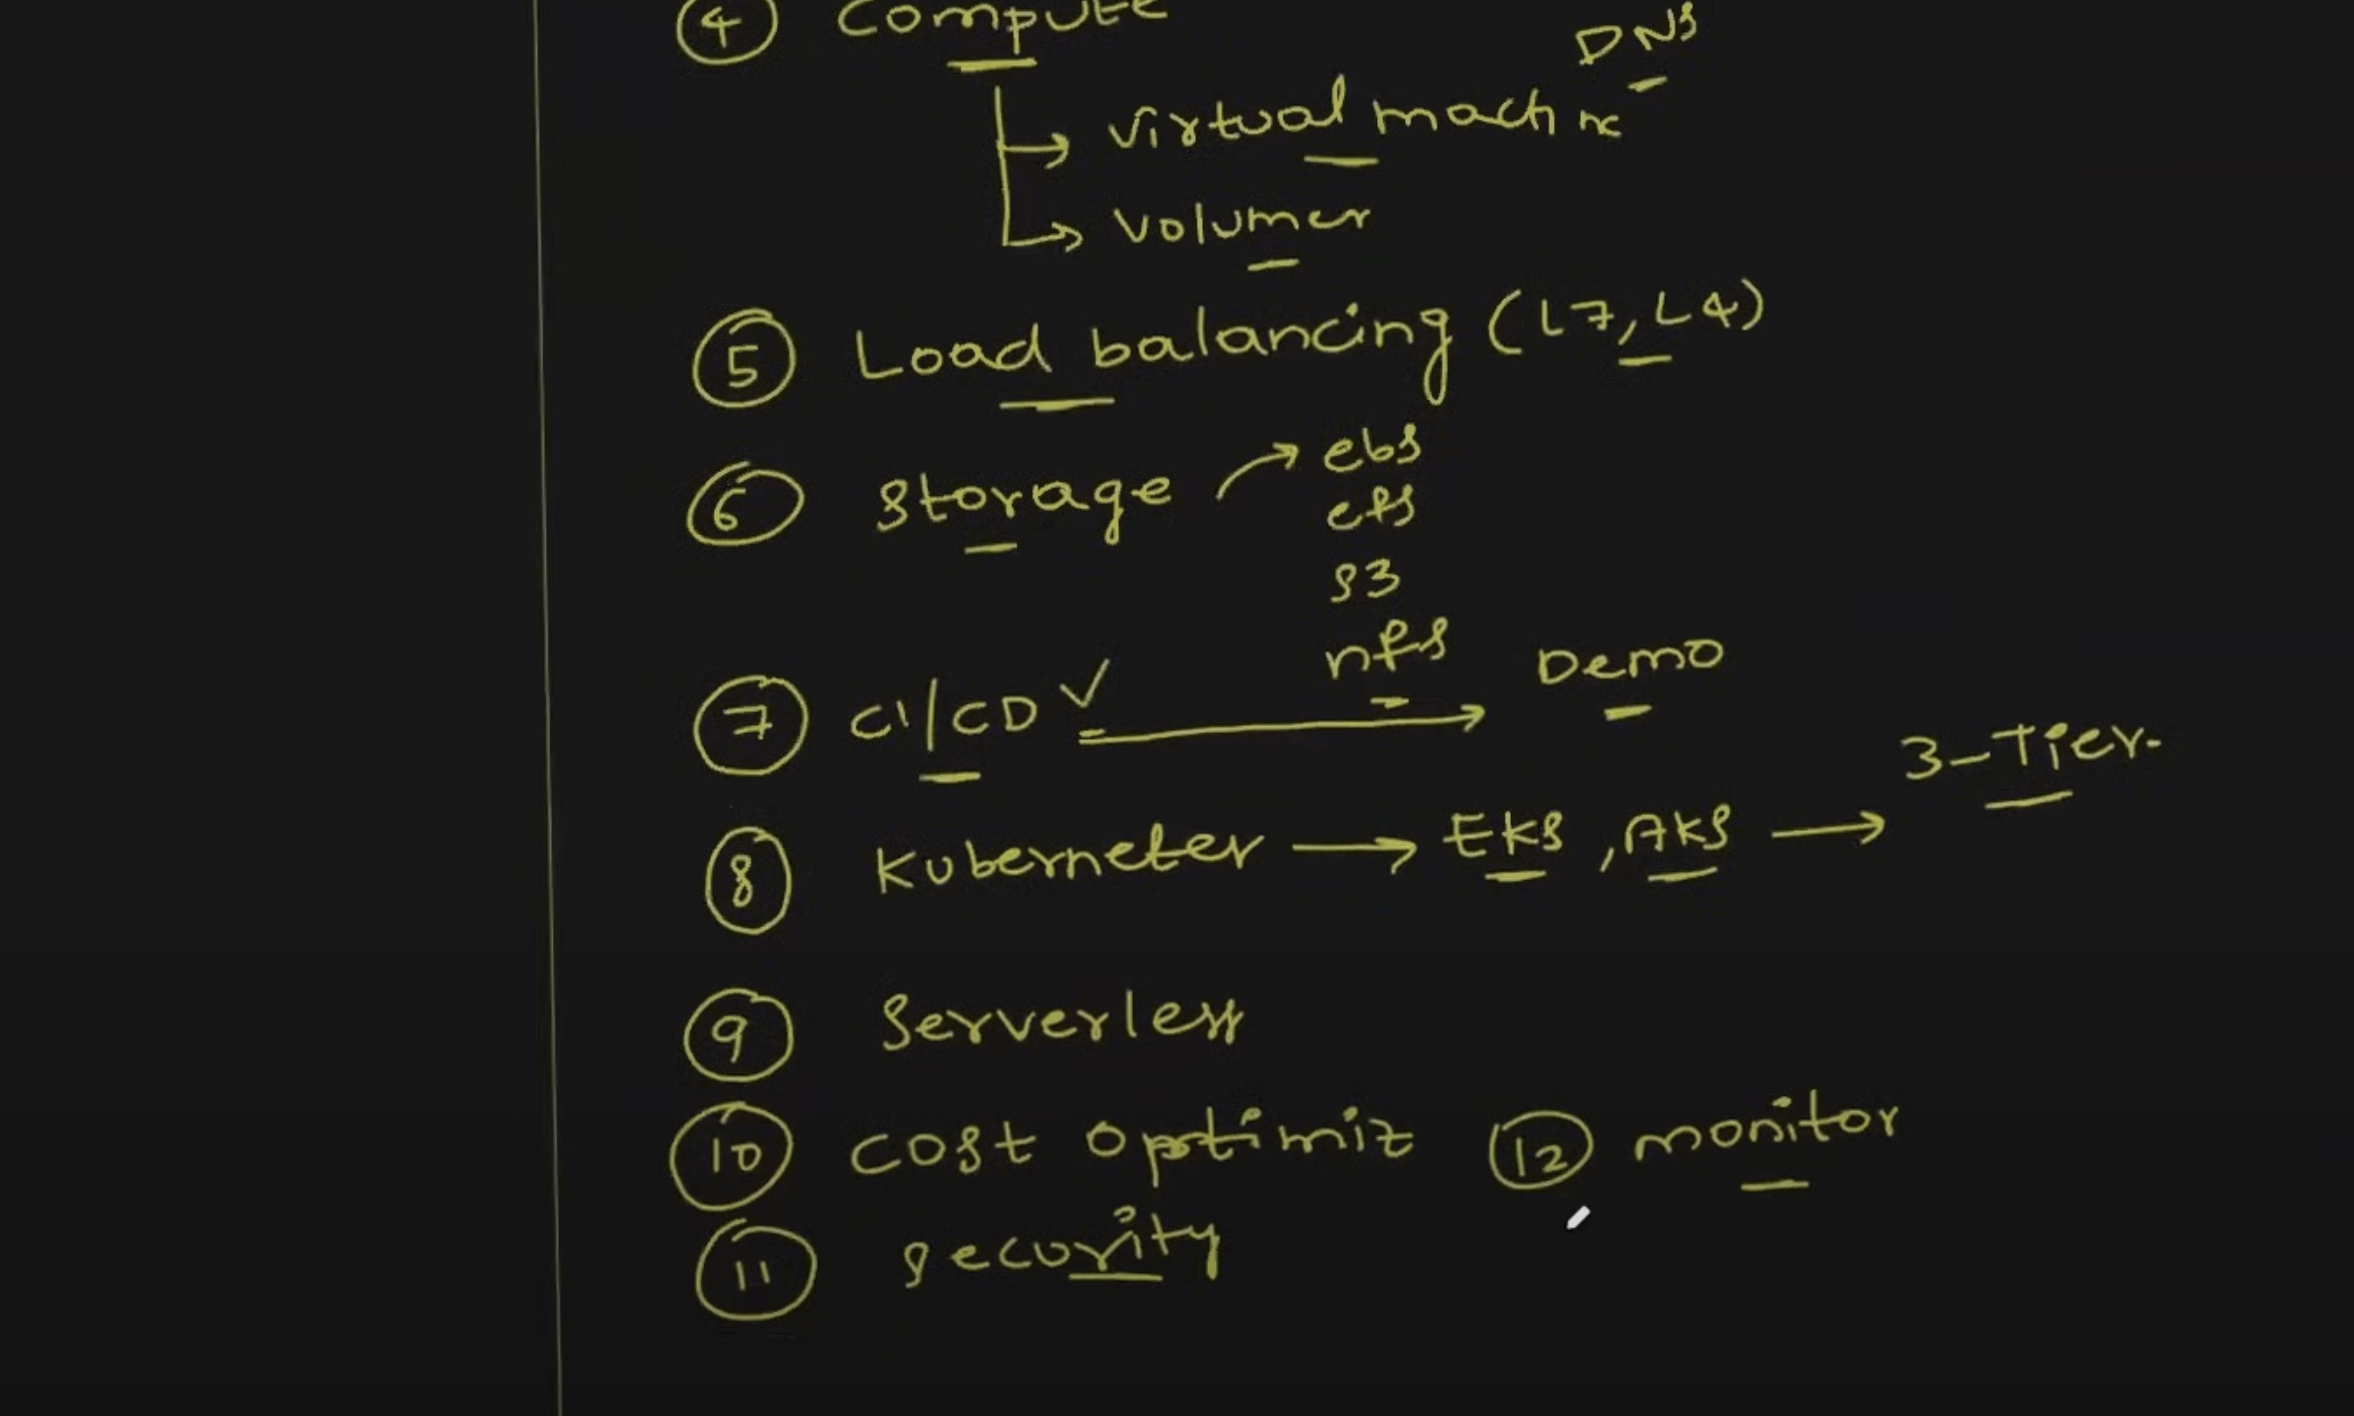 ④ Compute
DNS
→ Virtual machine
→ Volumes
⑤ Load balancing (L7, L4)
⑥ Storage → ebs
efs
s3
nfs
⑦ CI/CD ✓ → Demo
⑧ Kubernetes → EKS, AKS → 3-Tier.
⑨ Serverless
⑩ Cost optimiz ⑫ monitor
⑪ security